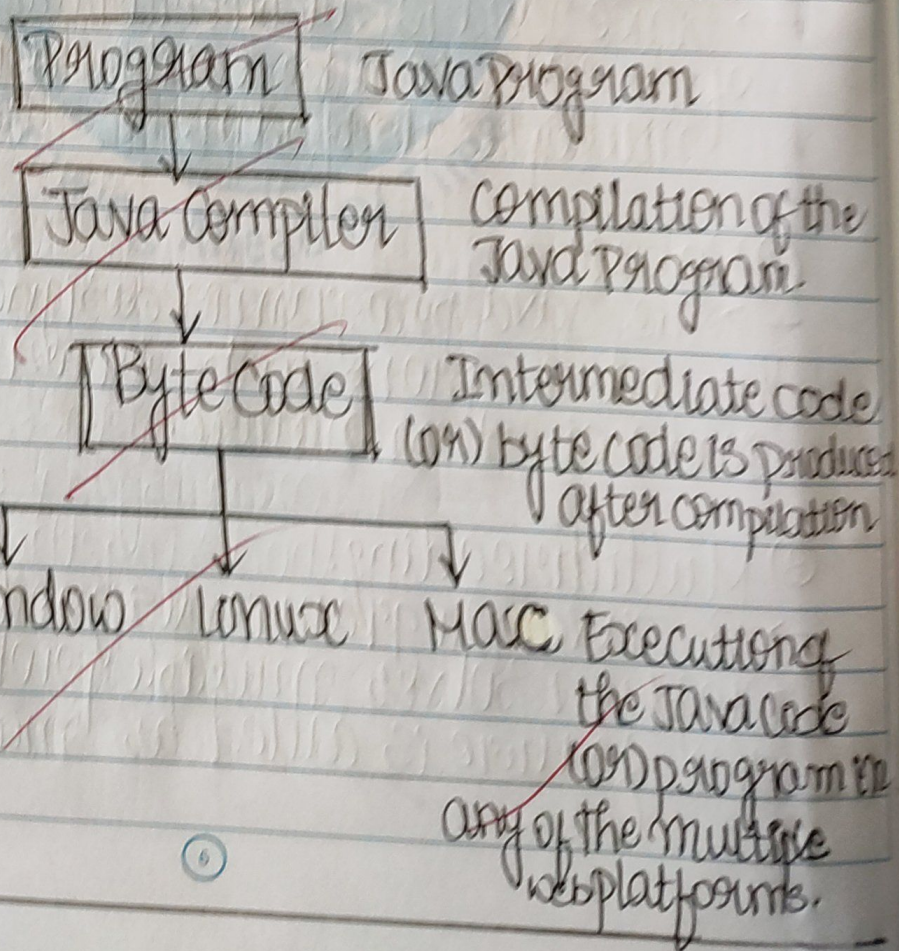 Program Java Program
Java Compiler Compilation of the
Java Program.
Byte Code Intermediate code
(or) byte code is produced
after compilation
ndow Linux Macc Execution of
the Java code
(or) program in
any of the multiple
web platforms.
6